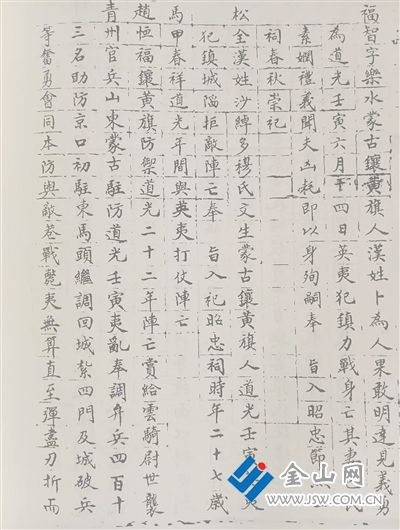 福智字樂水蒙古鑲黃旗人漢姓卜為人果敢明達見義勇
為道光壬寅六月十四日英夷犯鎮力戰身亡其妻氏
素嫻禮義聞夫凶耗即以身殉嗣奉 旨入昭忠節
祠春秋崇祀
松全漢姓沙綽多穆氏文生蒙古鑲黃旗人道光壬寅夷
犯鎮城陷拒敵陣亡奉 旨入祀昭忠祠時年二十七歲
馬甲春祥道光年間與英夷打仗陣亡
趙恒福鑲黃旗防禦道光二十二年陣亡賞給雲騎尉世襲
青州官兵山東蒙古駐防道光壬寅夷亂奉調弁兵四百十
三名助防京口初駐東馬頭繼調回城紮四門及城破兵
等奮勇會同本防與敵巷戰斃夷無算直至彈盡刃折而
金山网